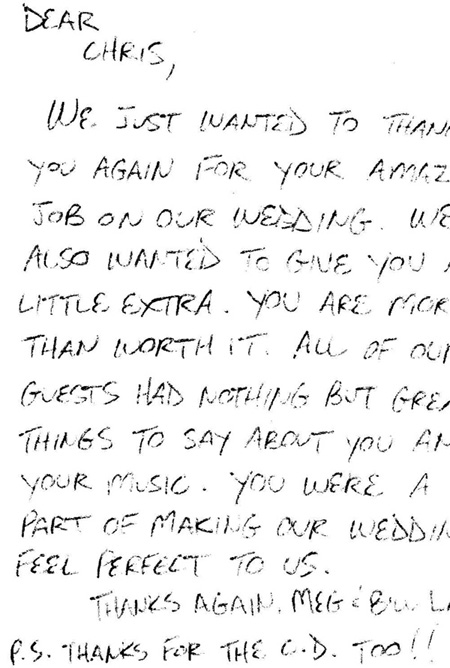 DEAR
CHRIS,
WE JUST WANTED TO THANK
YOU AGAIN FOR YOUR AMAZ
JOB ON OUR WEDDING. WE
ALSO WANTED TO GIVE YOU A
LITTLE EXTRA. YOU ARE MOR
THAN WORTH IT. ALL OF OUR
GUESTS HAD NOTHING BUT GREA
THINGS TO SAY ABOUT YOU AN
YOUR MUSIC. YOU WERE A
PART OF MAKING OUR WEDDIN
FEEL PERFECT TO US.
THANKS AGAIN, MEG & BILL LA
P.S. THANKS FOR THE C.D. TOO!!